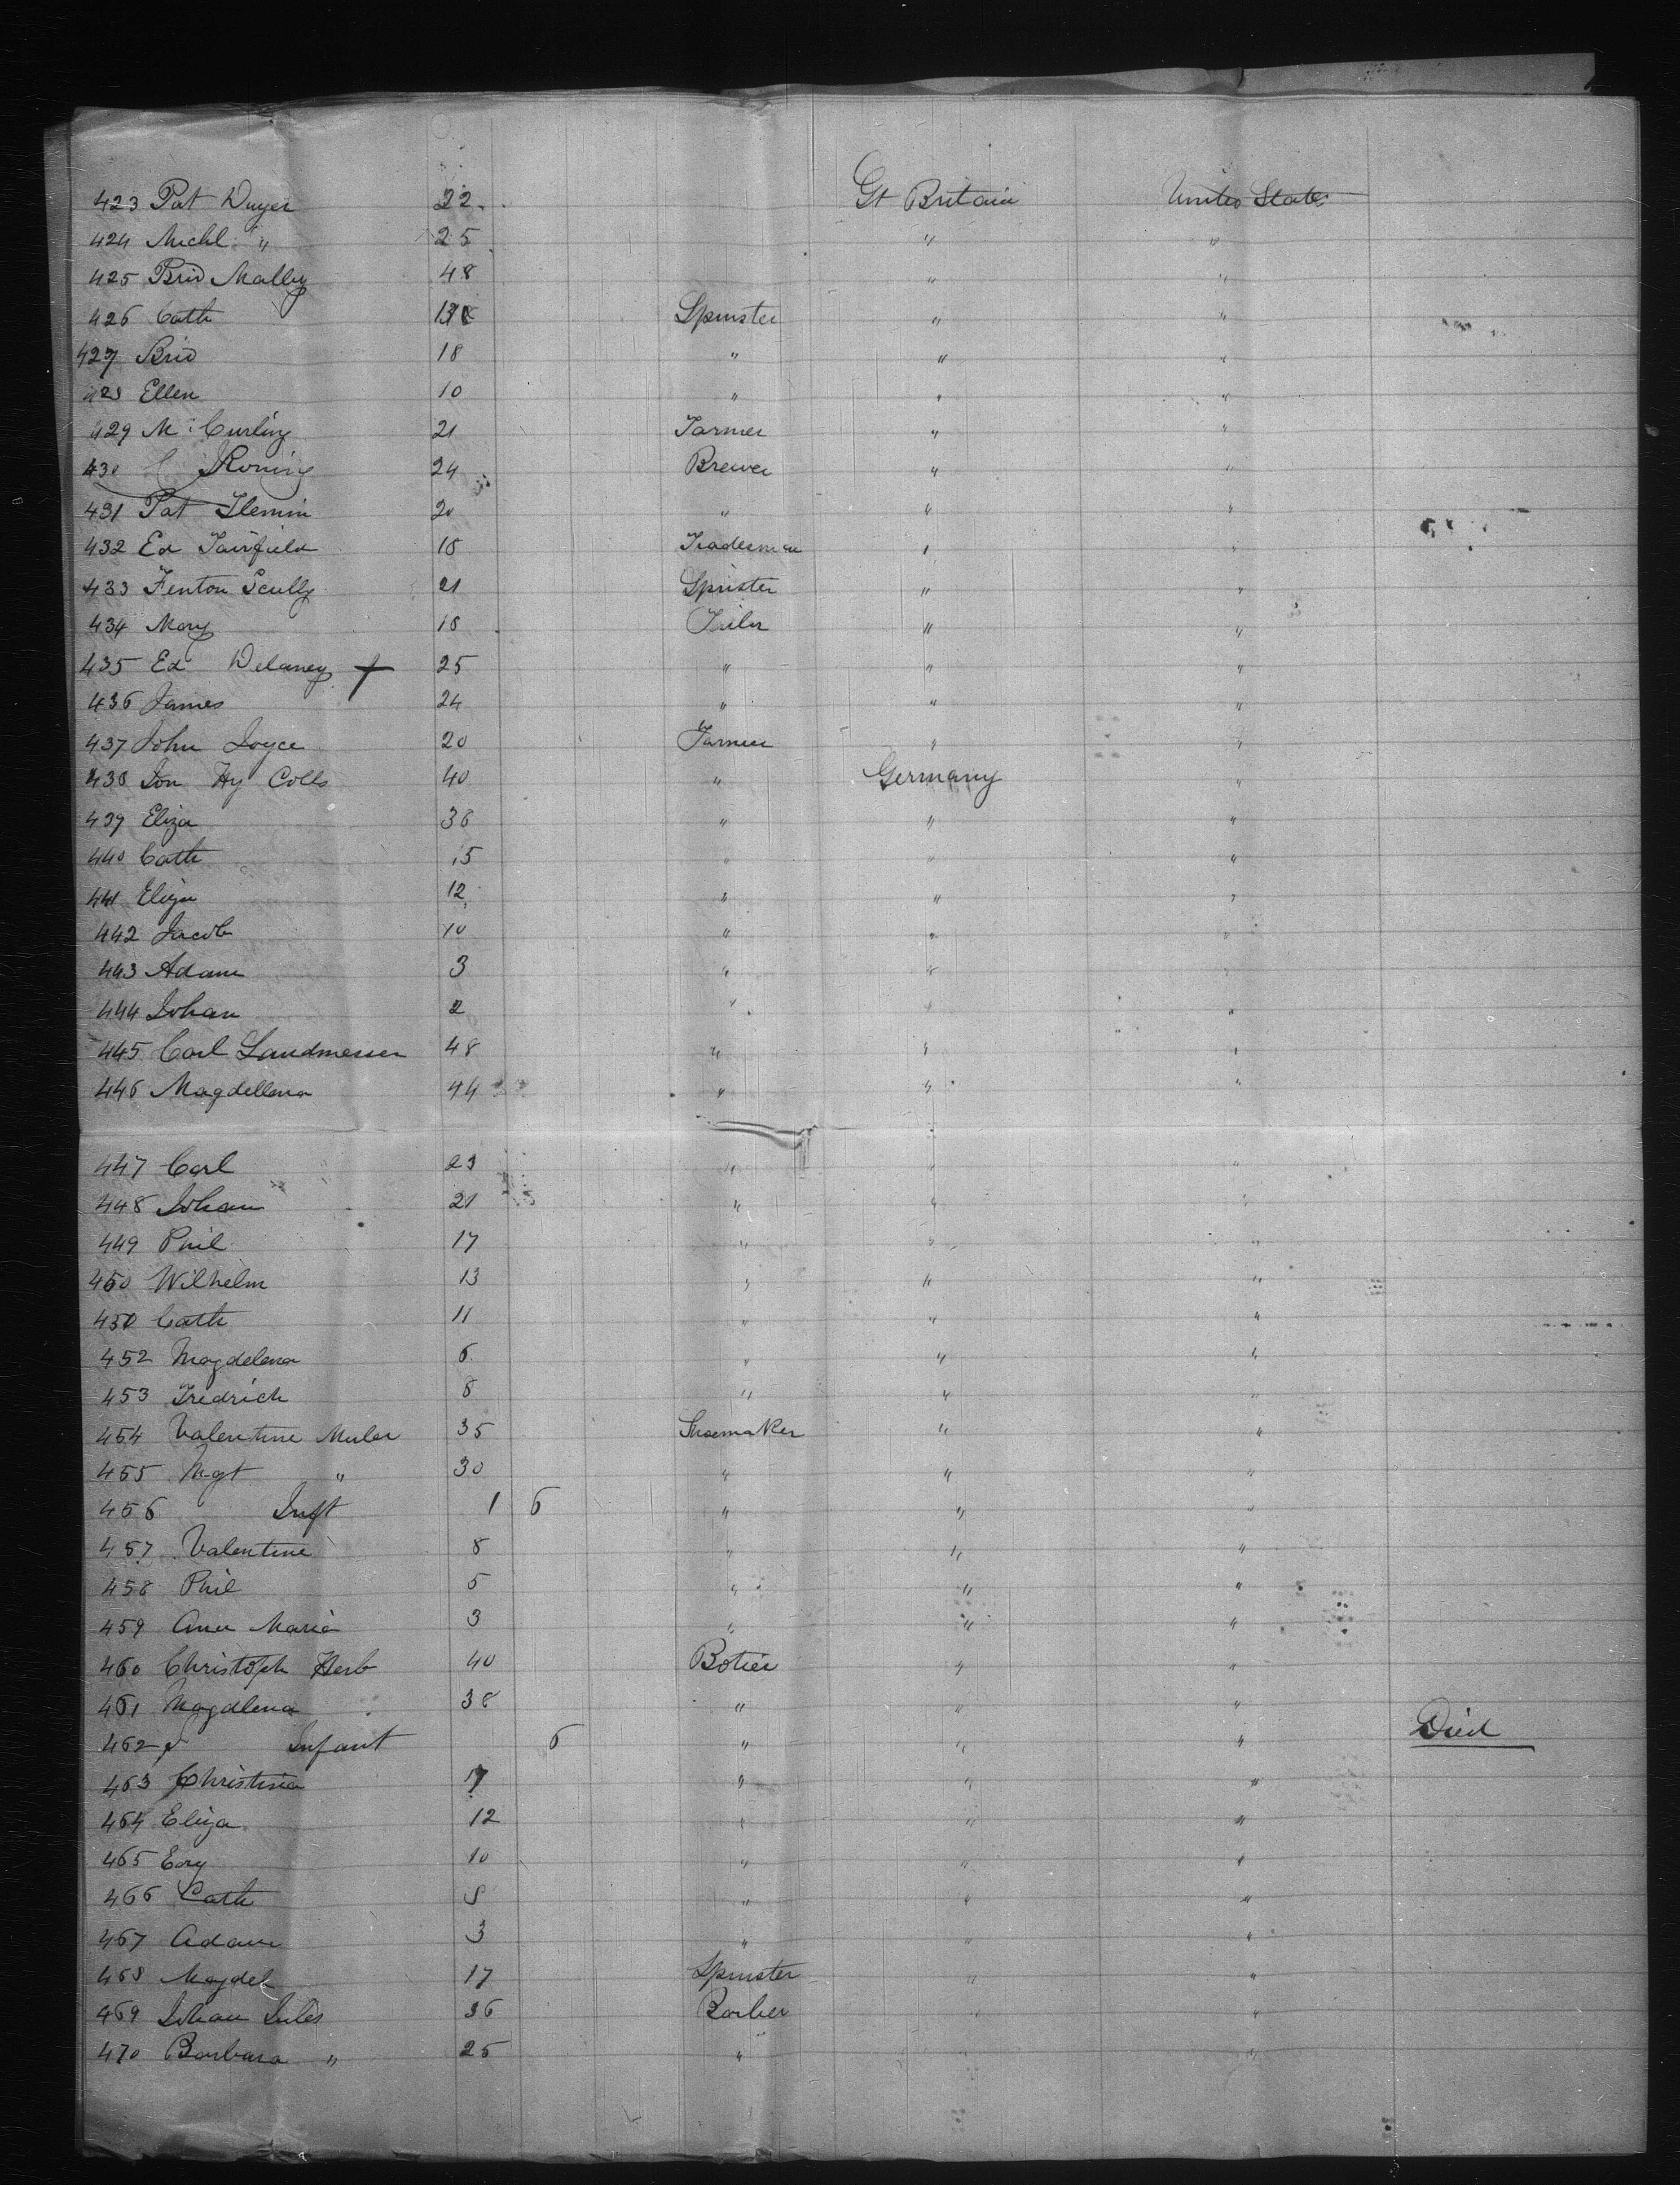 423 Pat Dwyer 22 Gt Britain United States
424 Michl " 25 " "
425 Brid Malley 48 " "
426 Cath Spinster " "
427 Brid 18 " " "
428 Ellen 10 " " "
429 M Curling 21 Farmer " "
430 24 Brewer " "
431 Pat Flemin 20 " " "
432 Ed Fairfield 18 Tradesman " "
433 Fenton Scully 21 Sprister " "
434 Mary 18 " "
435 Ed Delaney 25 " " "
436 James 24 " " "
437 John Joyce 20 Farmer " "
438 Jon Hy Colls 40 " Germany "
439 Eliza 38 " " "
440 Cath 15 " " "
441 Eliza 12 " " "
442 Jacob 10 " " "
443 Adam 3 " " "
444 Johan 2 " " "
445 Carl Landmesser 48 " " "
446 Magdellena 44 " " "
447 Carl 23 " " "
448 Johan 21 " " "
449 Phil 17 " " "
450 Wilhelm 13 " " "
450 Cath 11 " " "
452 Magdelena 6 " " "
453 Fredrich 8 " " "
454 Valentine Muler 35 Shoemaker " "
455 Mgt " 30 " " "
456 Inft 1 6 " " "
457 Valentine 8 " " "
458 Phil 5 " " "
459 Ann Maria 3 " " "
460 Christoph Herb 40 " "
461 Magdlena 38 " " "
462 Infant 6 " " " Died
463 Christina 7 " " "
464 Eliza 12 " " "
465 10 " " "
466 Cath 8 " " "
467 Adam 3 " " "
468 Magdel 17 Spinster " "
469 Johan Jules 36 Barber " "
470 Barbara " 25 " " "